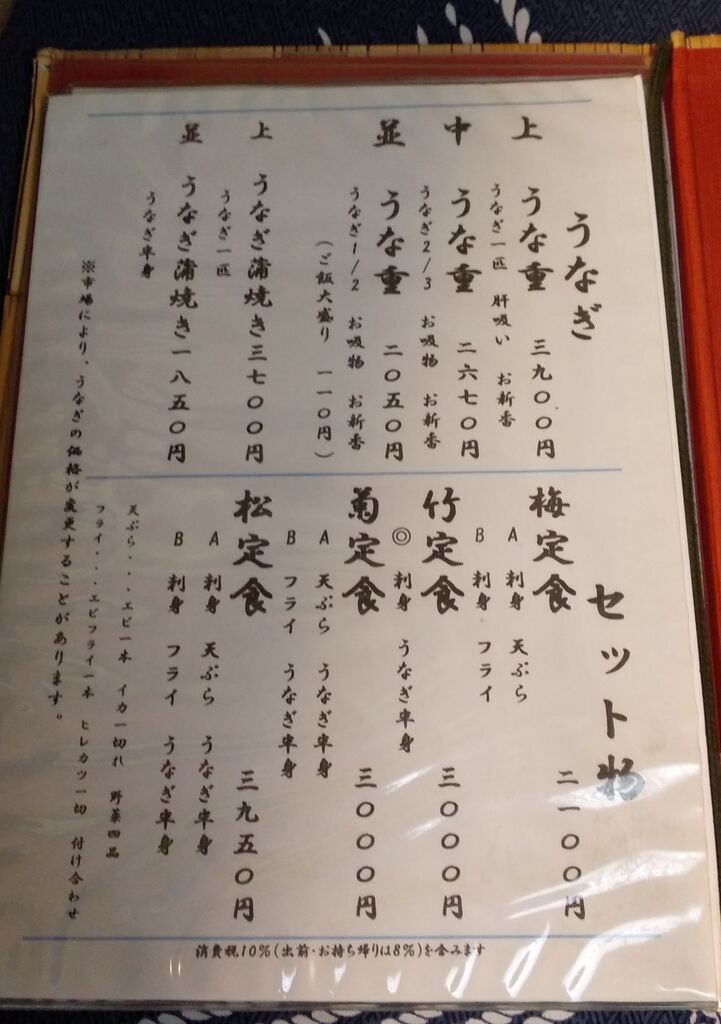 うなぎ
上 うな重 三九〇〇円
うなぎ一匹 肝吸い お新香
中 うな重 二六七〇円
うなぎ2/3 お吸物 お新香
並 うな重 二〇五〇円
うなぎ1/2 お吸物 お新香
(ご飯大盛り 一一〇円)
上 うなぎ蒲焼き三七〇〇円
うなぎ一匹
並 うなぎ蒲焼き一八五〇円
うなぎ半身
※市場により、うなぎの価格が変更することがあります。
セット物
梅定食 二一〇〇円
A 刺身 天ぷら
B 刺身 フライ
竹定食 三〇〇〇円
◎ 刺身 うなぎ半身
菊定食 三〇〇〇円
A 天ぷら うなぎ半身
B フライ うなぎ半身
松定食 三九五〇円
A 刺身 天ぷら うなぎ半身
B 刺身 フライ うなぎ半身
天ぷら・・・エビ一本 イカ一切れ 野菜四品
フライ・・・エビフライ一本 ヒレカツ一切 付け合わせ
消費税10%(出前・お持ち帰りは8%)を含みます